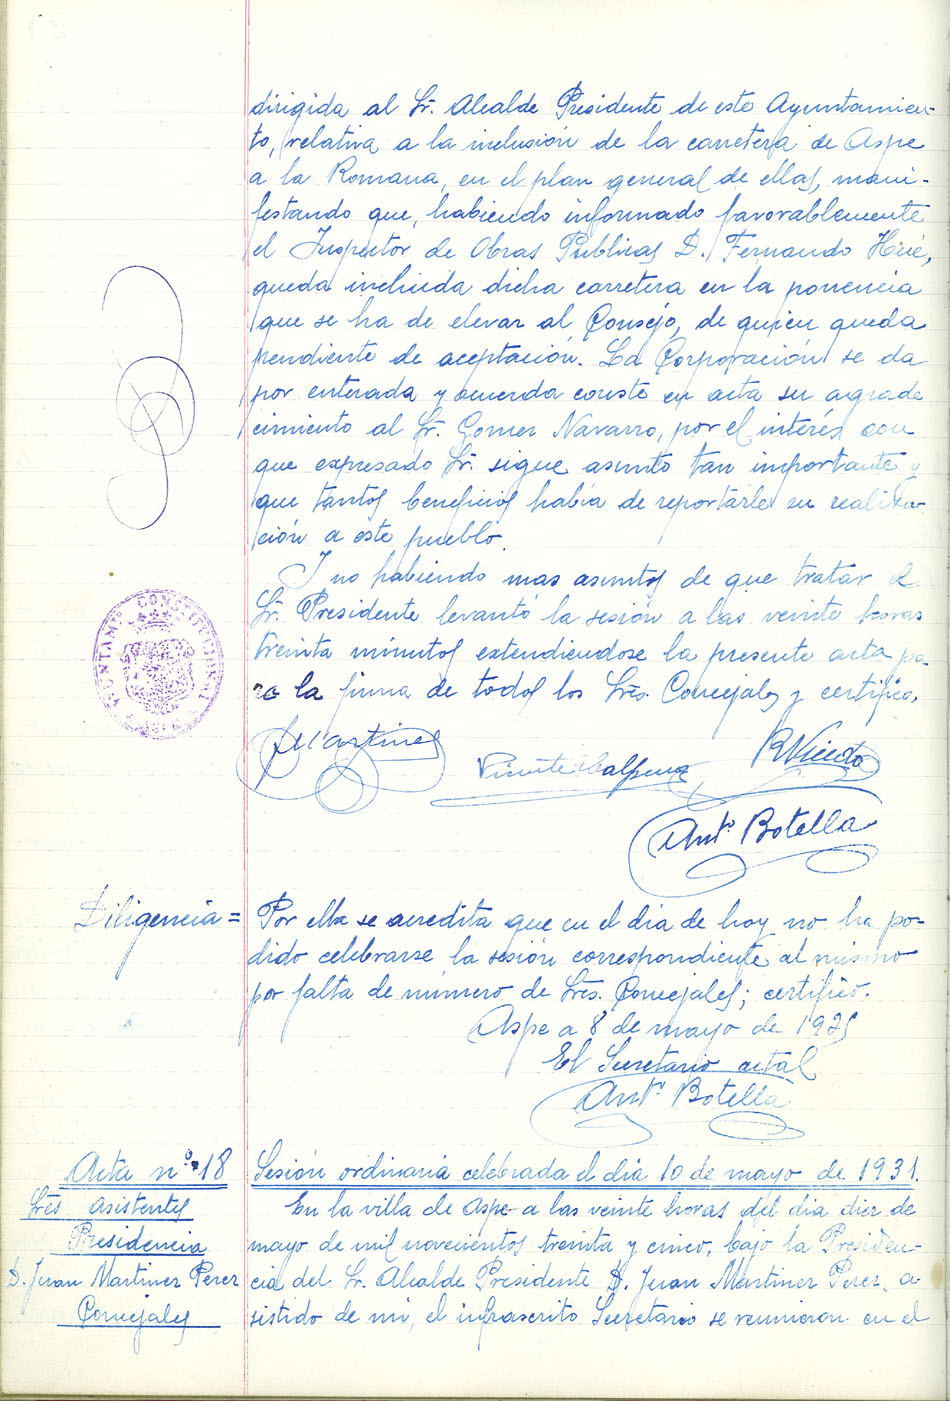 dirigida al Sr. Alcalde Presidente de este Ayuntamien-
to, relativa a la inclusión de la carretera de Aspe
a la Romana, en el plan general de ellas, mani-
festando que, habiendo informado favorablemente
el Inspector de Obras Publicas D. Fernando Hué,
queda incluida dicha carretera en la ponencia
que se ha de elevar al Consejo, de quien queda
pendiente de aceptación. La Corporación se da
por enterada y acuerda conste en acta su agrade
cimiento al Sr. Gomez Navarro, por el interés con
que expresado Sr. sigue asunto tan importante y
que tantos beneficios había de reportarle su realiza-
ción a este pueblo.
I no habiendo mas asuntos de que tratar el
Sr. Presidente levantó la sesión a las veinte horas
treinta minutos extendiendose la presente acta pa
ra la firma de todos los Sres. Concejales y certifico.
AYUNTAMTO CONSTITUCIONAL
J Martinez
Vicente Calpena
R Vicedo
Antº Botella
Diligencia = Por ella se acredita que en el dia de hoy no ha po-
dido celebrarse la sesión correspondiente al mismo
por falta de número de Sres. Concejales; certifico.
Aspe a 8 de mayo de 1935
El Secretario actal
Antº Botella
Acta nº 18 Sesión ordinaria celebrada el dia 10 de mayo de 1931.
Sres asistentes En la villa de Aspe a las veinte horas del dia diez de
Presidencia mayo de mil novecientos treinta y cinco, bajo la Presiden-
D. Juan Martinez Perez cia del Sr. Alcalde Presidente D. Juan Martinez Perez, a
Concejales sistido de mi, el infrascrito Secretario se reunieron en el